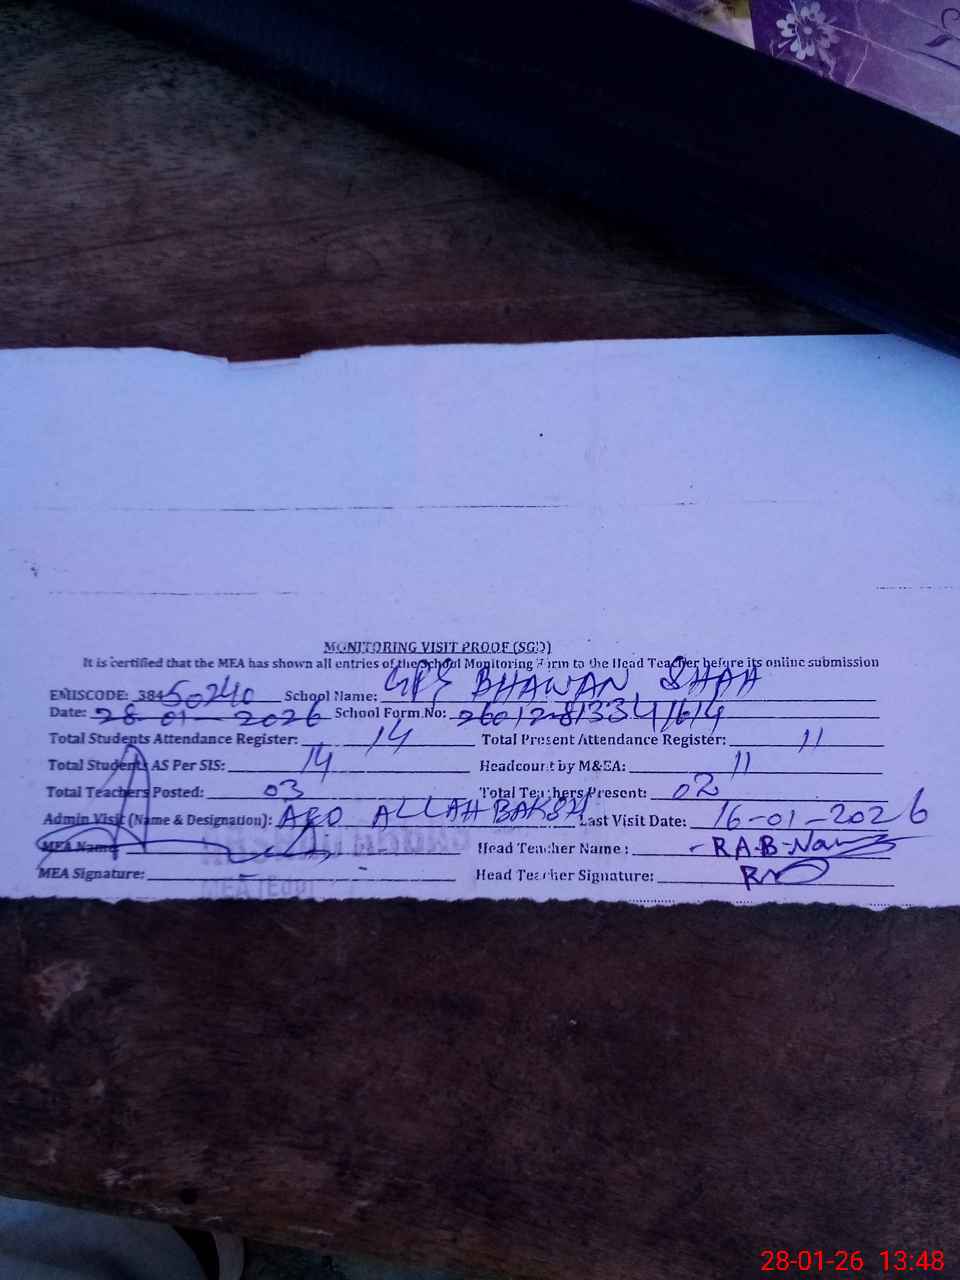 MONITORING VISIT PROOF (SGD)
It is certified that the MEA has shown all entries of the School Monitoring Form to the Head Teacher before its online submission
EMISCODE: 38450240 School Name: GPS BHAWAN SHAH
Date: 28-01-2026 School Form No:
Total Students Attendance Register: 14 Total Present Attendance Register: 11
Total Students AS Per SIS: 14 Headcount by M&EA: 11
Total Teachers Posted: 03 Total Teachers Present: 02
Admin Visit (Name & Designation): AEO ALLAH BAKSH Last Visit Date: 16-01-2026
MEA Name: Head Teacher Name: R.A.B-Nawaz
MEA Signature: Head Teacher Signature:
28-01-26 13:48